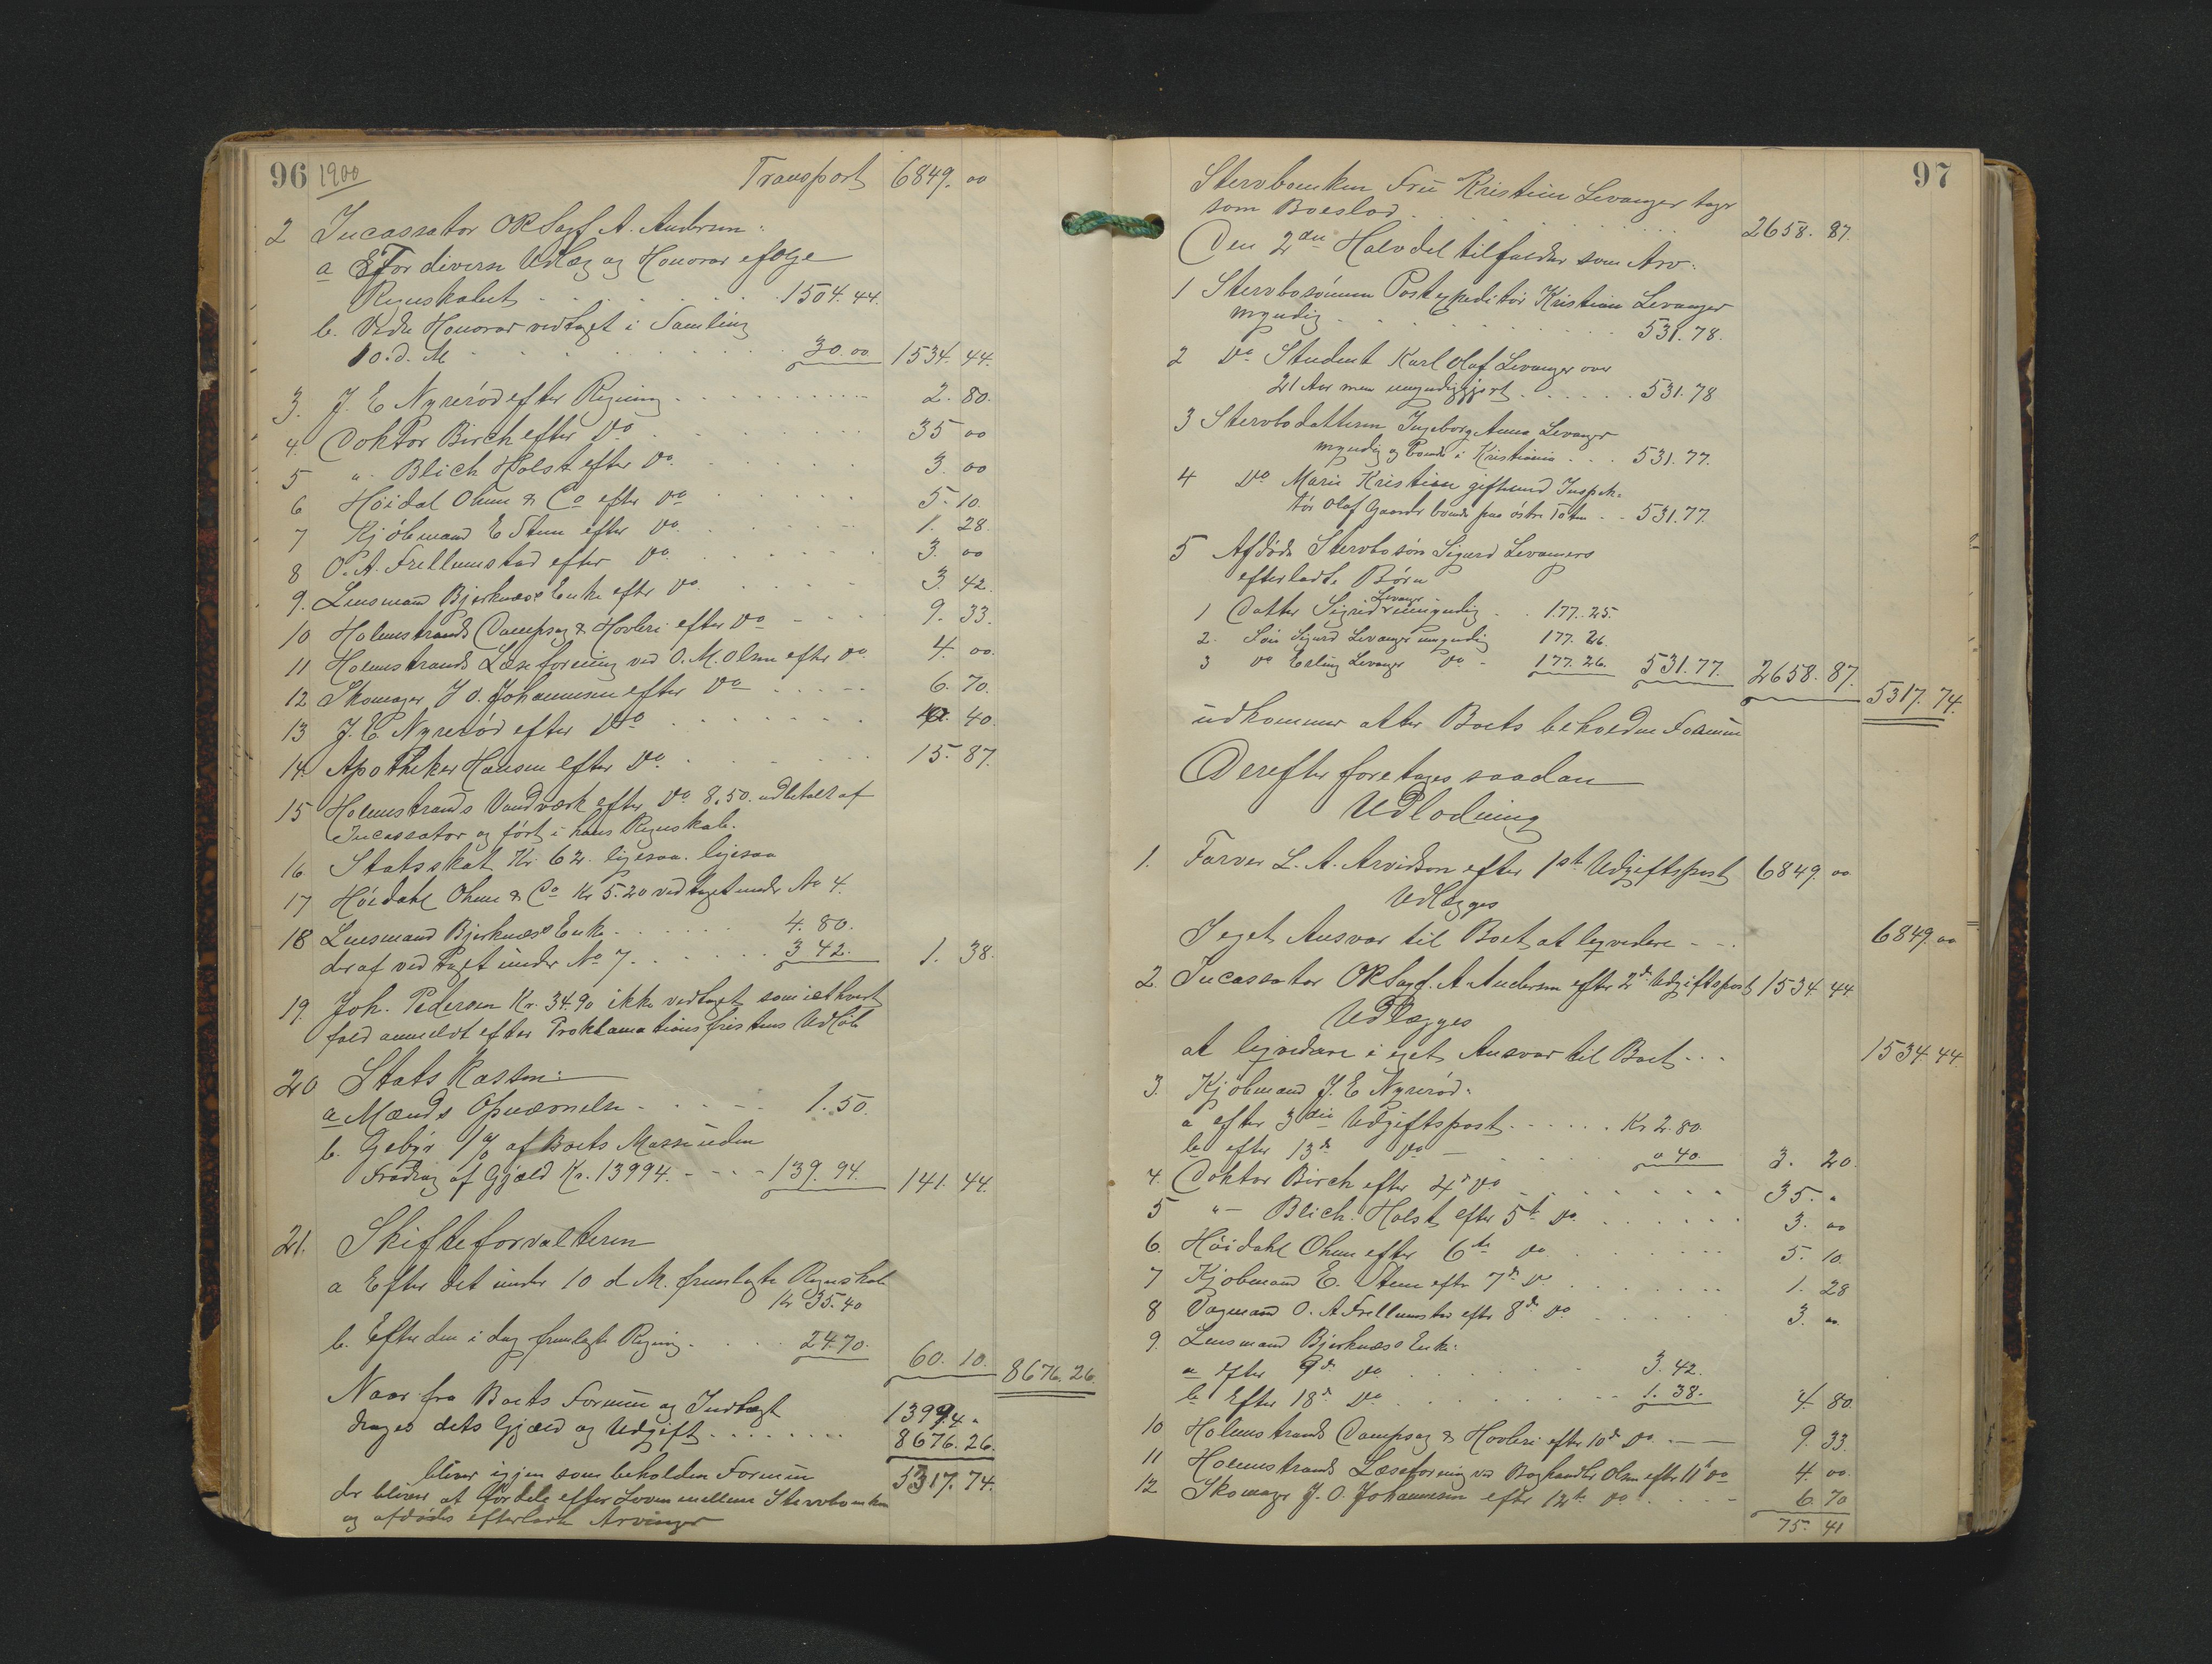 96 1900
Transport 6849. 00
2 Incassator ORSagf A. Andersen:
a For diverse Udlæg og Honorar efølge
Regnskabet . . . 1504. 44.
b. Vedr Honorar vedtaget i Samling
10. d. M . . . 30. 00 1534. 44.
3. J. E Nyrerød efter Regning . . . 2. 80.
4. Doktor Birch efter Do . . . 35 00
5 " Blich Holst efter Do . . . 3. 00
6 Høidal Ohme & Co efter Do . . . 5. 10.
7 Kjøbmand E Steen efter Do . . . 1. 28.
8 O. A. Frellumstad efter Do . . . 3. 00
9. Lensmand Bjerknæs's Enke efter Do . . . 3. 42.
10 Holmstrands Dampsag & Høvleri efter Do . . . 9. 33.
11 Holmstrands Læseforening ved O. M. Olsen efter Do 4. 00.
12 Skomager J O. Johannesen efter Do . . . 6. 70.
13 J. E. Nyrerød efter Do . . . 40.
14. Apotheker Hansen efter Do . . . 15. 87.
15 Holmstrands Vandværk efter Do 8.50. udbetalt af
Incassator og ført i hans Regnskab.
16 Statsskat Kr. 62. ligesaa. ligesaa
17 Høidahl Ohme & Co Kr 5.20 vedtaget under No 4.
18 Lensmand Bjerknæs's Enke . . . 4. 80.
deraf vedtaget under No 7 . . . 3 42. 1. 38.
19. Joh. Pedersen Kr. 34.90 ikke vedtaget som i ethvert
fald anmeldt efter Proklamationsfristens Udløb
20 Stats Kassen:
a Mænds Opnævnelse . . . 1. 50.
b. Gebyr 1 % af Boets Masse uden
Fradrag af Gjæld Kr. 13994. . . . 139. 94. 141. 44.
21. Skifteforvalteren
a Efter det under 10 d M. fremlagte Regnskab
Kr 35. 40
b. Efter den i dag fremlagte Regning . . . 24.70. 60. 10. 8676. 26.
Naar fra Boets Formue og Indtægt 13994. "
drages dets Gjæld og Udgift . . . 8676. 26.
bliver igjen som beholden Formue 5317. 74.
der bliver at fordele efter Loven mellem Stervboenken
og afdødes efterladte Arvinger
97
Stervboenken Fru Kristine Levanger tager
som Boeslod . . . 2658. 87.
Den 2den Halvdel tilfalder som Arv.
1 Stervbosønnen Postexpeditør Kristian Levanger
myndig . . . 531. 78.
2 Do Student Karl Olaf Levanger over
21 Aar men umyndiggjort . . . 531. 78
3 Stervbodatteren Ingeborg Anna Levanger
myndig og boende i Kristiania . . . 531. 77.
4 Do Marie Kristiane gift med Inspek-
tør Olaf Gaarder boende paa østre Toten . . 531. 77.
5 Afdøde Stervbosøn Sigurd Levangers
efterladte Børn
1 Datter Sigrid Levanger umyndig . . 177. 25.
2. Søn Sigurd Levanger umyndig 177. 26.
3 Do Erling Levanger Do - 177. 26. 531. 77. 2658. 87. 5317. 74.
udkommer atter Boets beholdne Formue
Derefter foretages saadan
Udlodning
1. Farver L. A. Arvidson efter 1ste Udgiftspost 6849. 00
Udlægges
I eget Ansvar til Boet at leqvidere . . . 6849. 00
2. Incassator ORSagf. A Andersen efter 2d Udgiftspost 1534. 44.
Udlægges
at leqvidere i eget Ansvar til Boet . . . 1534. 44.
3. Kjøbmand J. E Nyrerød.
a efter 3die Udgiftspost . . . Kr 2. 80.
b efter 13d Do . . . " 40 3. 20.
4. Doktor Birch efter 4d Do . . . 35. "
5 " - Blich. Holst efter 5t Do . . . 3. 00
6. Høidahl Ohme efter 6te Do . . . 5. 10.
7 Kjøbmand E. Steen efter 7d Do . . . 1. 28
8 Vognmand O. A Frellumstad efter 8d Do . . . 3. 00
9. Lensmand Bjerknæs's Enke:
a efter 9d Do . . . 3. 42.
b Efter 18d Do . . . 1. 38. 4. 80.
10 Holmstrands Dampsag & Høvleri efter 10d Do . . . 9. 33.
11 Holmstrands Læseforening ved Boghandler Olsen efter 11t Do 4. 00.
12 Skomager J. O. Johannesen efter 12te Do . . . 6. 70
75. 41